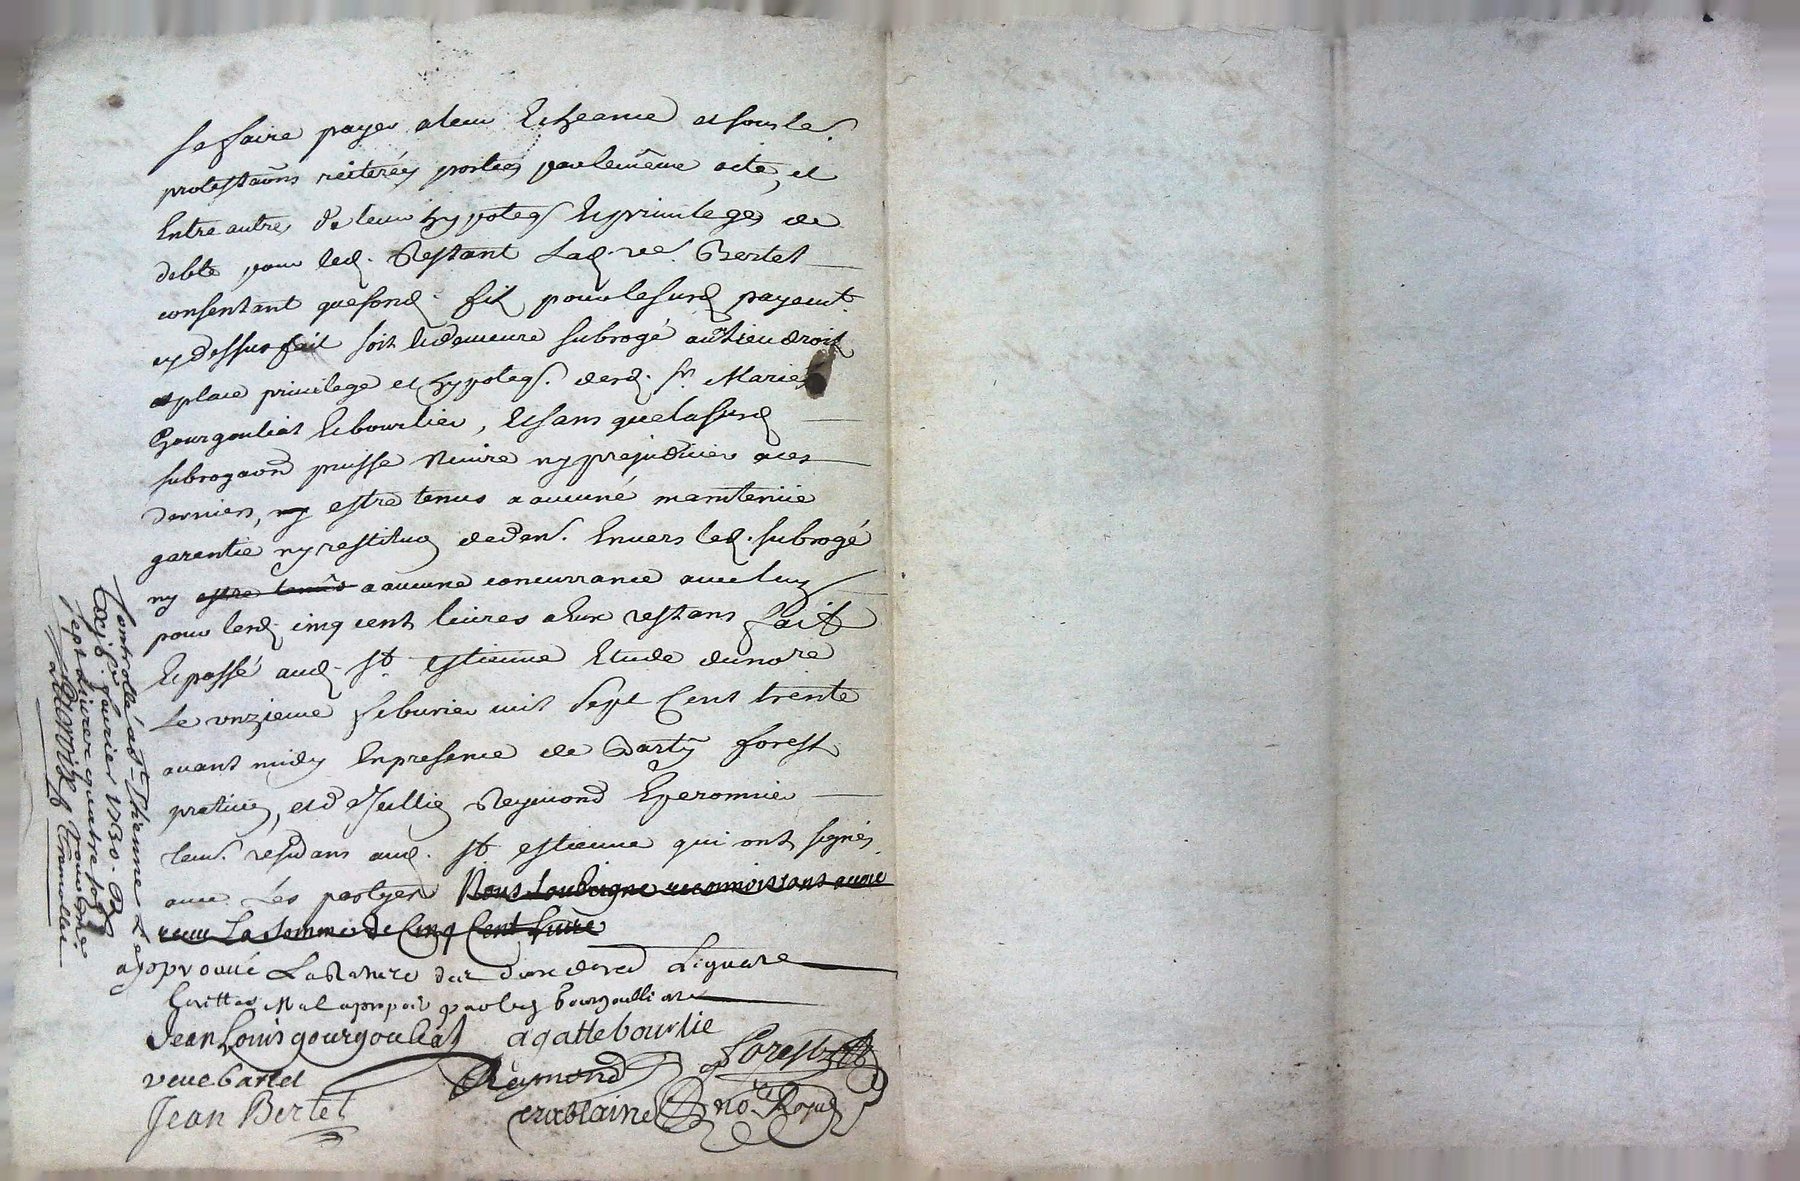 se faire payer a leur Echeance et sous les
protestaõns reiterées portées par le même acte, et
Entre autres de leur hypoteq. Et privileges de
debte pour led. Restant Lad. ve. Bertet
consentant que sond. fils pour le susd payemt.
cy dessus fait soit Et demeure subrogé au lieu droit
et place privilege et hypoteq. desd. sr. Mariés
Gourgouliat Et bourlier, Et sans que la susd
subrogaõn puisse Nuire ny prejudicier a ces
derniers, ny estre tenus a aucune maintenüe
garentie ny restituõn de den. Envers led. subrogé
ny estre tenus a aucune concurrance avec luy
pour lesd. cinq cent livres a Eux restans fait
Et passé aud. st. estienne Etude du no.re
Le unzieme feburier mil sept Cent trente
avant midy En presence de Barty forest
praticien, et de Jullie Reymond Eperonnier
tem. residans aud. st estienne qui ont signés
avec Les partyes Nous soubsigne reconnoissons avoir
receu La somme de Cinq Cent Livre
approuvé La Rature des deux Ligne
Ecrittes Mal apropos par led bourgoulliat
Jean Louis gourgouliat agatte bourlie
veue bartet Reymond forest
Jean Bertet crablaine no.re Royal
Controllé a St. Thienne Le
xij fevrier 1730. R
sept livres quatre sols